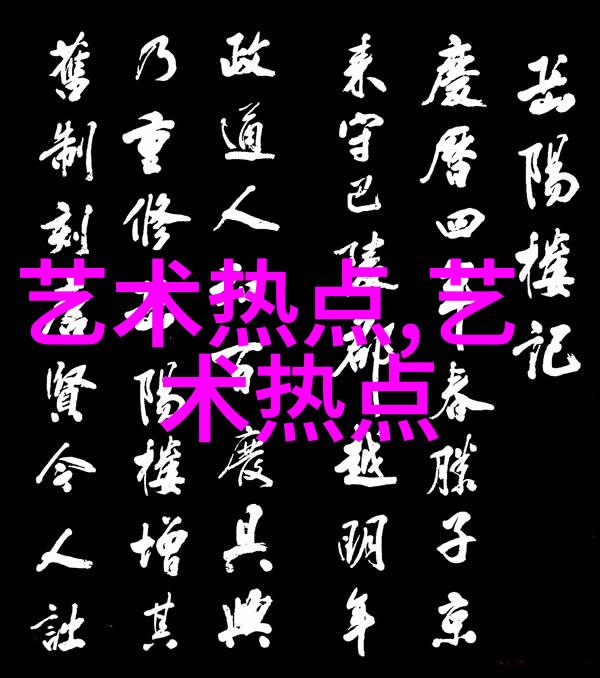 岳陽樓記
慶曆四年春滕子京
来守巴陵郡越明年
政通人和百廢具興
乃重修岳陽樓增其
舊制刻唐賢今人詩
艺术热点,艺
术热点